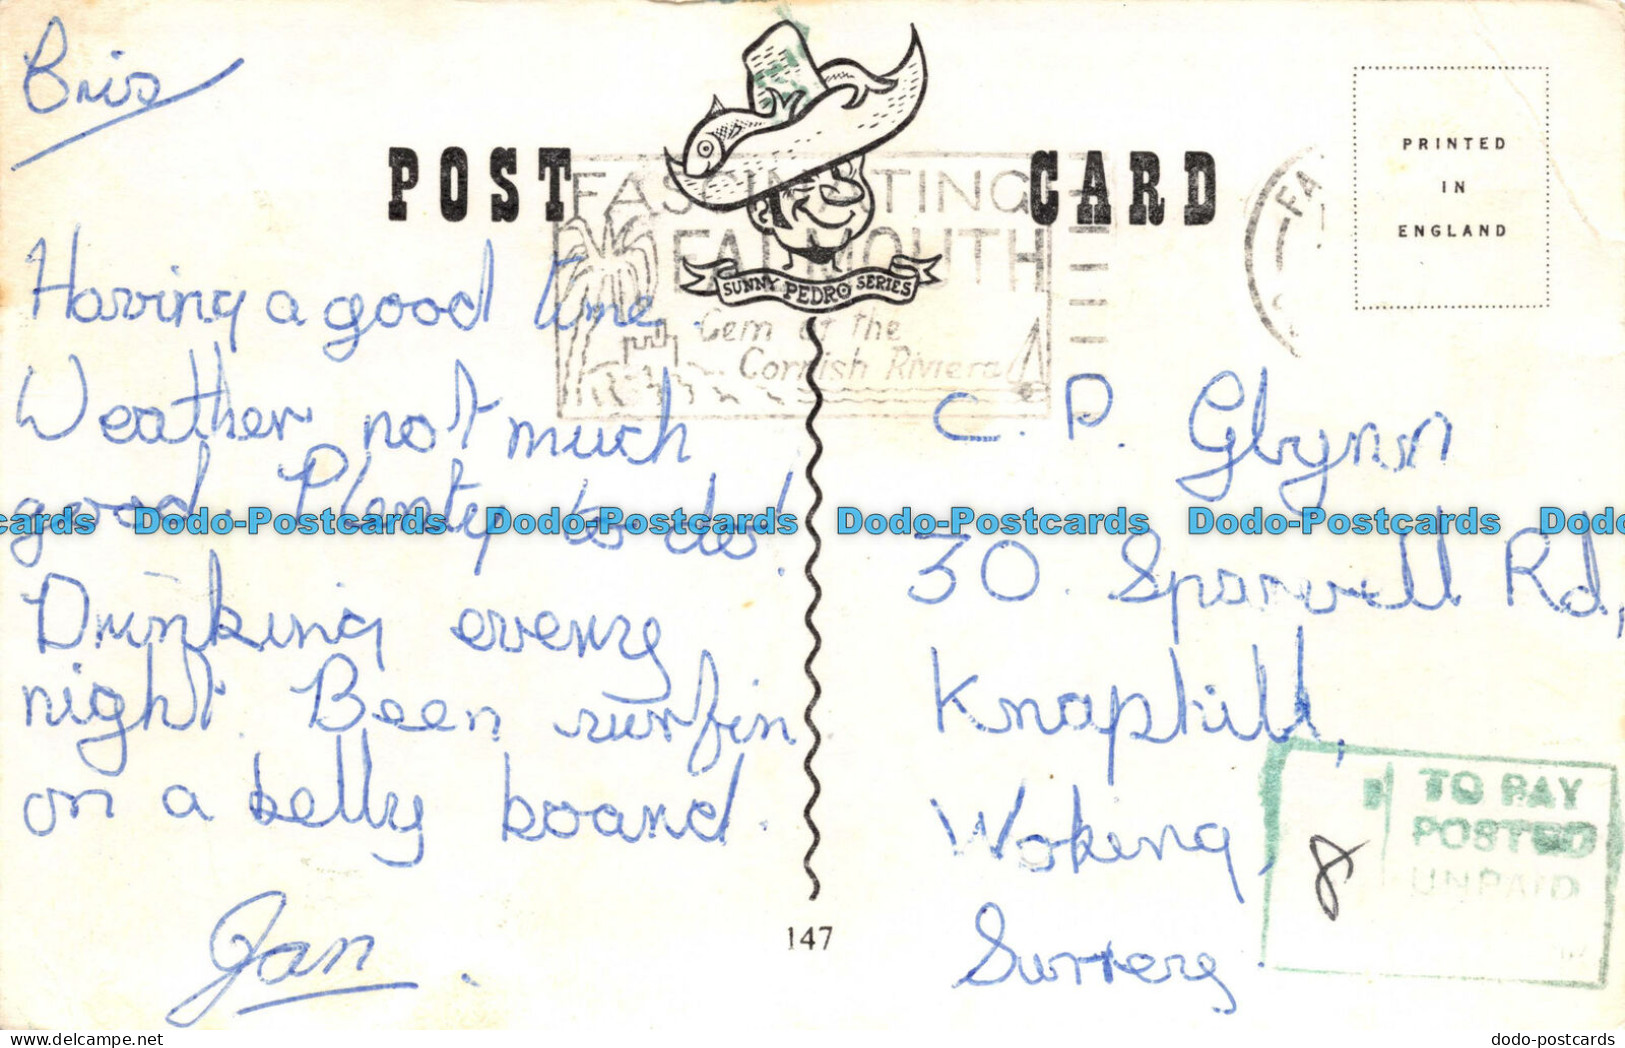 Bris
POST CARD
PRINTED
IN
ENGLAND
FASCINATING
FALMOUTH
Gem of the
Cornish Riviera
FA
SUNNY PEDRO SERIES
Having a good time.
Weather not much
good. Plenty to do.
Drinking every
night. Been surfin
on a belly board.
Jan.
C. P. Glynn
30. Sparvell Rd,
Knaphill,
Woking,
Surrey.
TO PAY
POSTED
UNPAID
8
147
Dodo-Postcards Dodo-Postcards Dodo-Postcards Dodo-Postcards
www.delcampe.net
dodo-postcards